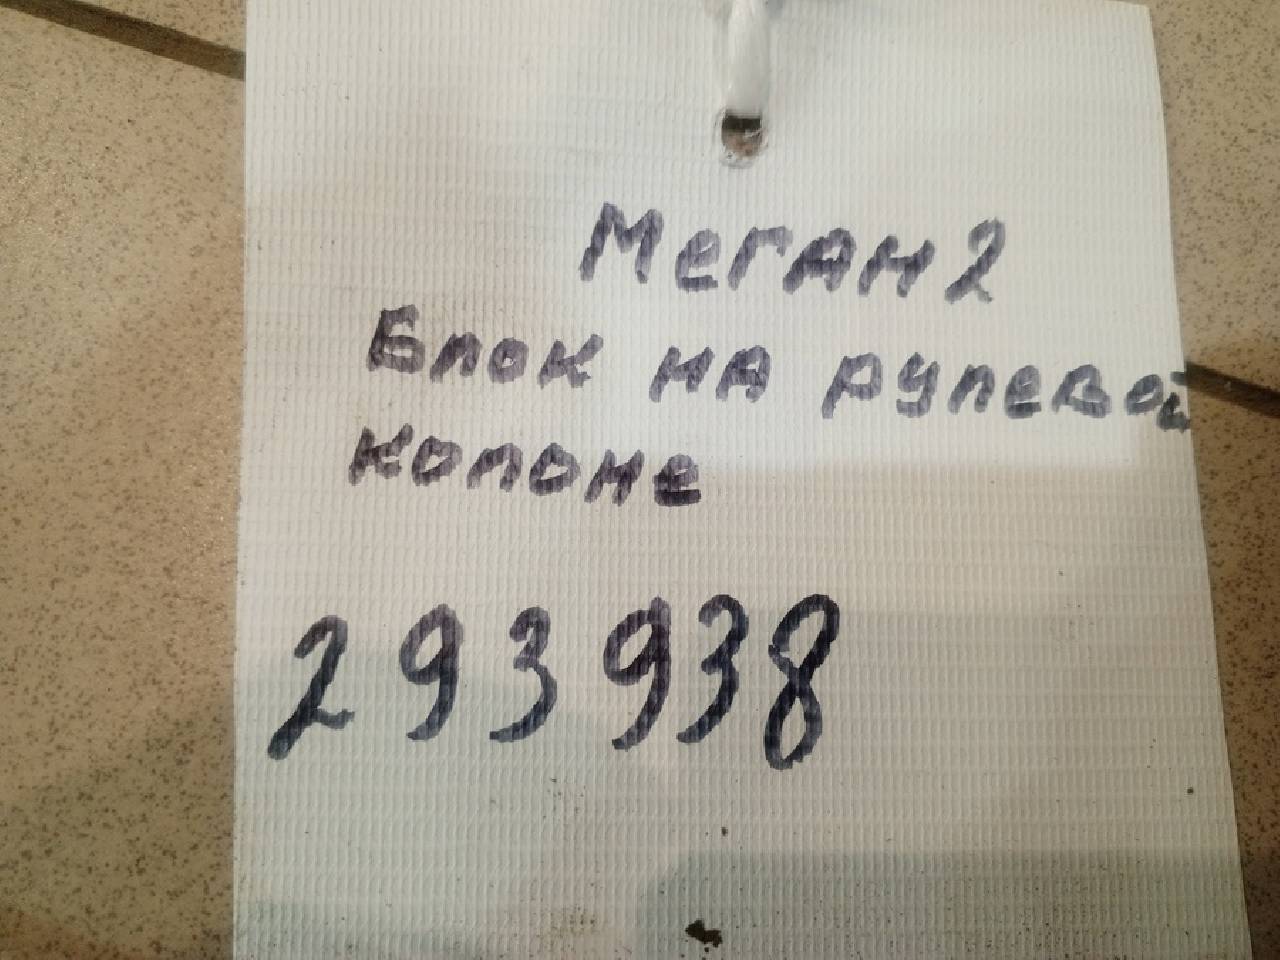 Меган 2
Блок на рулевой
колоне
293938